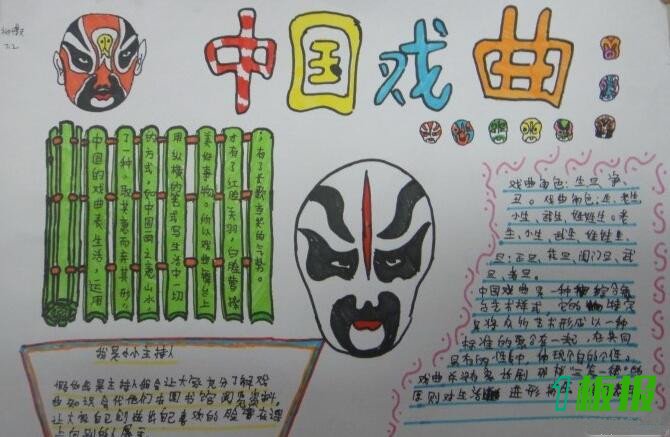 7.2
中国戏曲
中国的戏曲表生活,运用
了一种"取其意而弃其形"
的方式,如中国画之意山水,
用纵横的笔式写生活中一切
美好事物。所以戏曲舞台上
才有了红脸关羽,白脸曹操
;有了长歌当哭的气势。
戏曲角色:生旦净
丑。戏曲角色:生:老生
小生、武生、娃娃生。老
生、小生、武生、娃娃生
旦:正旦、花旦、闺门旦、武
旦、老旦。
中国戏曲是一种综合
艺术样式,它的
是将众的艺术形成以一种
标准的聚合在一起,在共同
具有的性中体现个自的个性
戏曲
原则对生活 进形
我是小小主持人
假如我是主持人我会让大家充分了解戏
曲知识会代他们去图书馆阅览资料。
让大家自己创作出自己喜欢的脸谱在课
上向别的人展示
板报